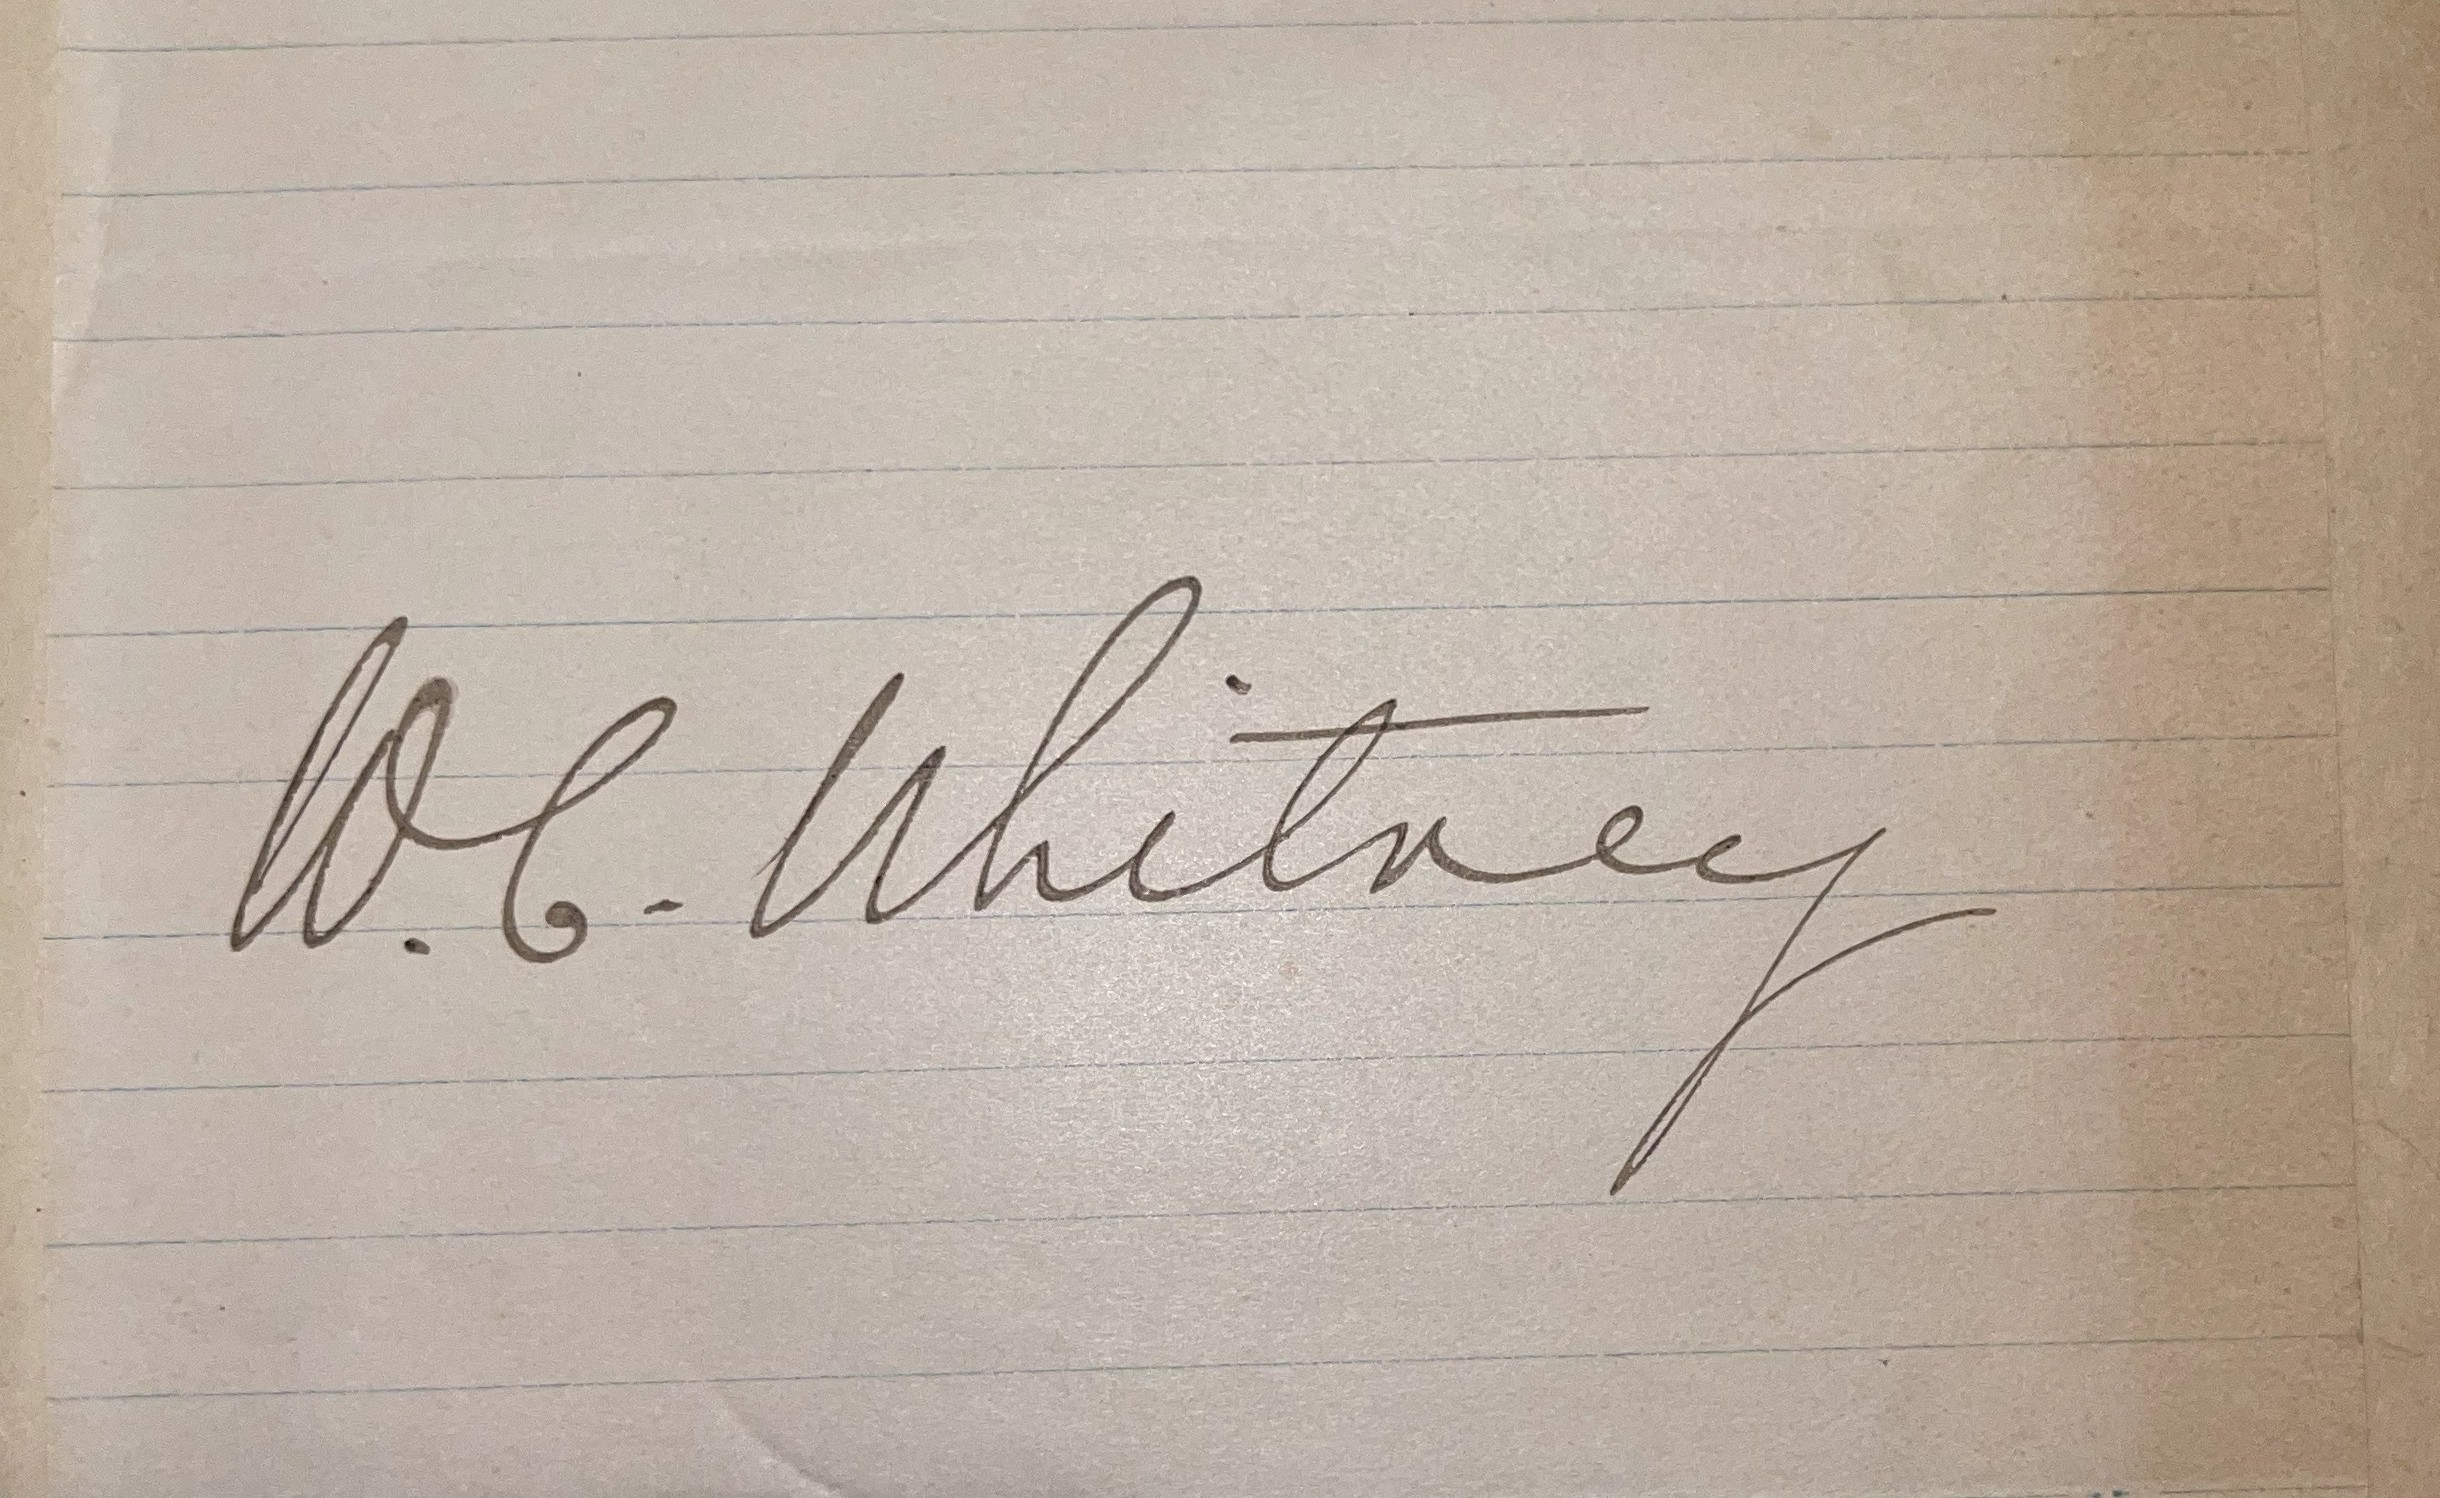 W. C. Whitney